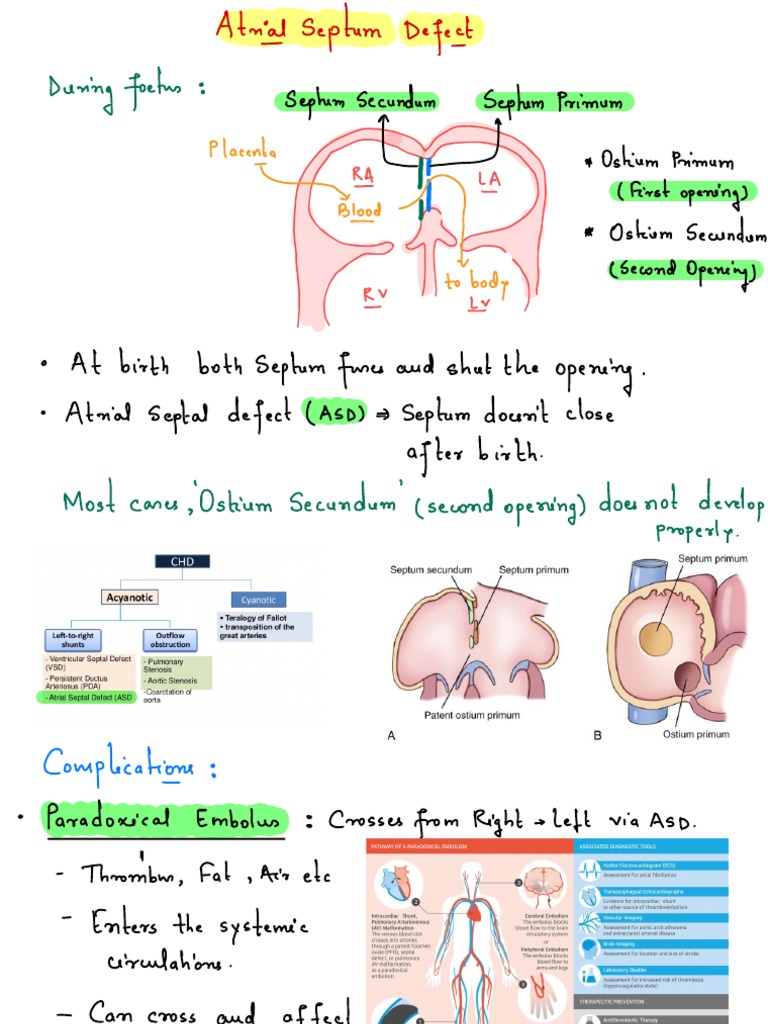 Atrial Septum Defect
During foetus :
Septum Secundum
Septum Primum
Placenta
RA
LA
Blood
RV
to body
LV
* Ostium Primum
(First opening)
* Ostium Secundum
(Second Opening)
• At birth both Septum fuses and shut the opening.
• Atrial Septal defect (ASD) ⇒ Septum doesn't close
after birth.
Most cases, 'Ostium Secundum' (second opening) does not develop
properly.
CHD
Acyanotic
Cyanotic
• Teralogy of Fallot
• transposition of the
great arteries
Left-to-right
shunts
Outflow
obstruction
- Ventricular Septal Defect
(VSD)
- Persistent Ductus
Arteriosus (PDA)
- Atrial Septal Defect (ASD
- Pulmonary
Stenosis
- Aortic Stenosis
-Coarctation of
aorta
Septum secundum
Septum primum
Patent ostium primum
A
Septum primum
Ostium primum
B
Complications :
• Paradoxical Embolus : Crosses from Right → left via ASD.
- Thrombus, Fat, Air etc
- Enters the systemic
circulations.
- Can cross and affect
PATHWAY OF A PARADOXICAL EMBOLISM
2
Intracardiac Shunt,
Pulmonary Arteriovenous
(AV) Malformation
The venous blood clot
crosses into arteries
through a patent foramen
ovale (PFO), septal
defect, or pulmonary
AV malformation,
as a paradoxical
embolism
3
Cerebral Embolism
The embolus blocks
blood flow to the brain
circulatory system
or
Peripheral Embolism
The embolus blocks
blood flow to
arms and legs
3
ASSOCIATED DIAGNOSTIC TOOLS
Holter Electrocardiogram (ECG)
Assessment for atrial fibrillation
Transesophageal Echocardiography
Evidence for intracardiac shunt
or other source of thromboembolism
Vascular Imaging
Assessment for aortic arch atheroma
and extracranial arterial disease
Brain Imaging
Assessment for location and size of stroke
Laboratory Studies
Assessment for increased risk of thrombosis
(hypercoagulable state)
THERAPEUTIC PREVENTION
Antithrombotic Therapy